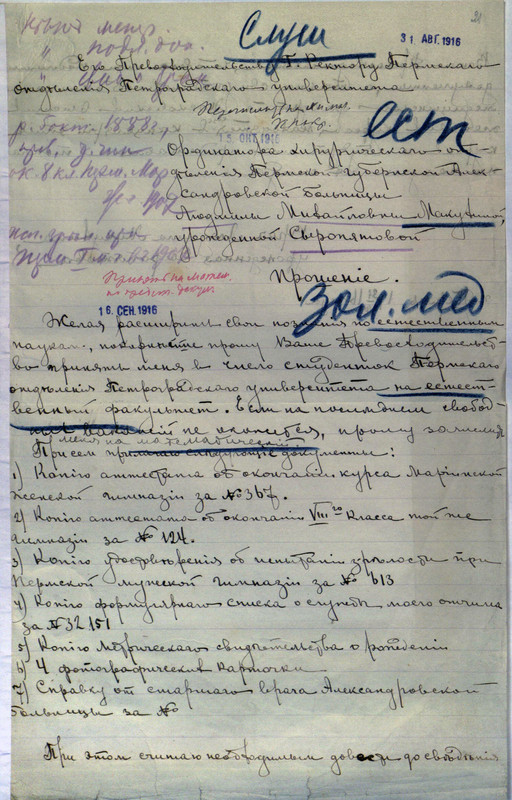 Слуш
31 АВГ. 1916
Его Превосходительству Г. Ректору Пермскаго
отдѣленія Петроградскаго университета
15 ОКТ. 1916
ест
Ординатора хирургическаго от-
дѣленія Пермской Губернской Алек-
сандровской больницы
Людмилы Михайловны Макушиной,
урожденной Сыропятовой
Прошеніе.
16 СЕН. 1916
Зол. мед
Желая расширить свои познанія по естественным
наукам, покорнѣйше прошу Ваше Превосходительст-
во принять меня в число студенток Пермскаго
отдѣленія Петроградскаго университета на естест-
венный факультет. Если на послѣднем свобод-
ных вакансій не окажется, прошу зачислить
меня на математическій
При сем прилагаю слѣдующіе документы:
1) Копію аттестата об окончаніи курса Маріинской
женской гимназіи за № 367.
2) Копію аттестата об окончаніи VIII го класса той же
гимназіи за № 124.
3) Копію удостовѣренія об испытаніи зрѣлости при
Пермской мужской гимназіи за № 613
4) Копію формулярнаго списка о службѣ моего отчима
за № 32151
5) Копію метрическаго свидѣтельства о рожденіи
6) 4 фотографическія карточки
7) Справку от старшаго врача Александровской
больницы за №
При этом считаю необходимым довести до свѣдѣнія